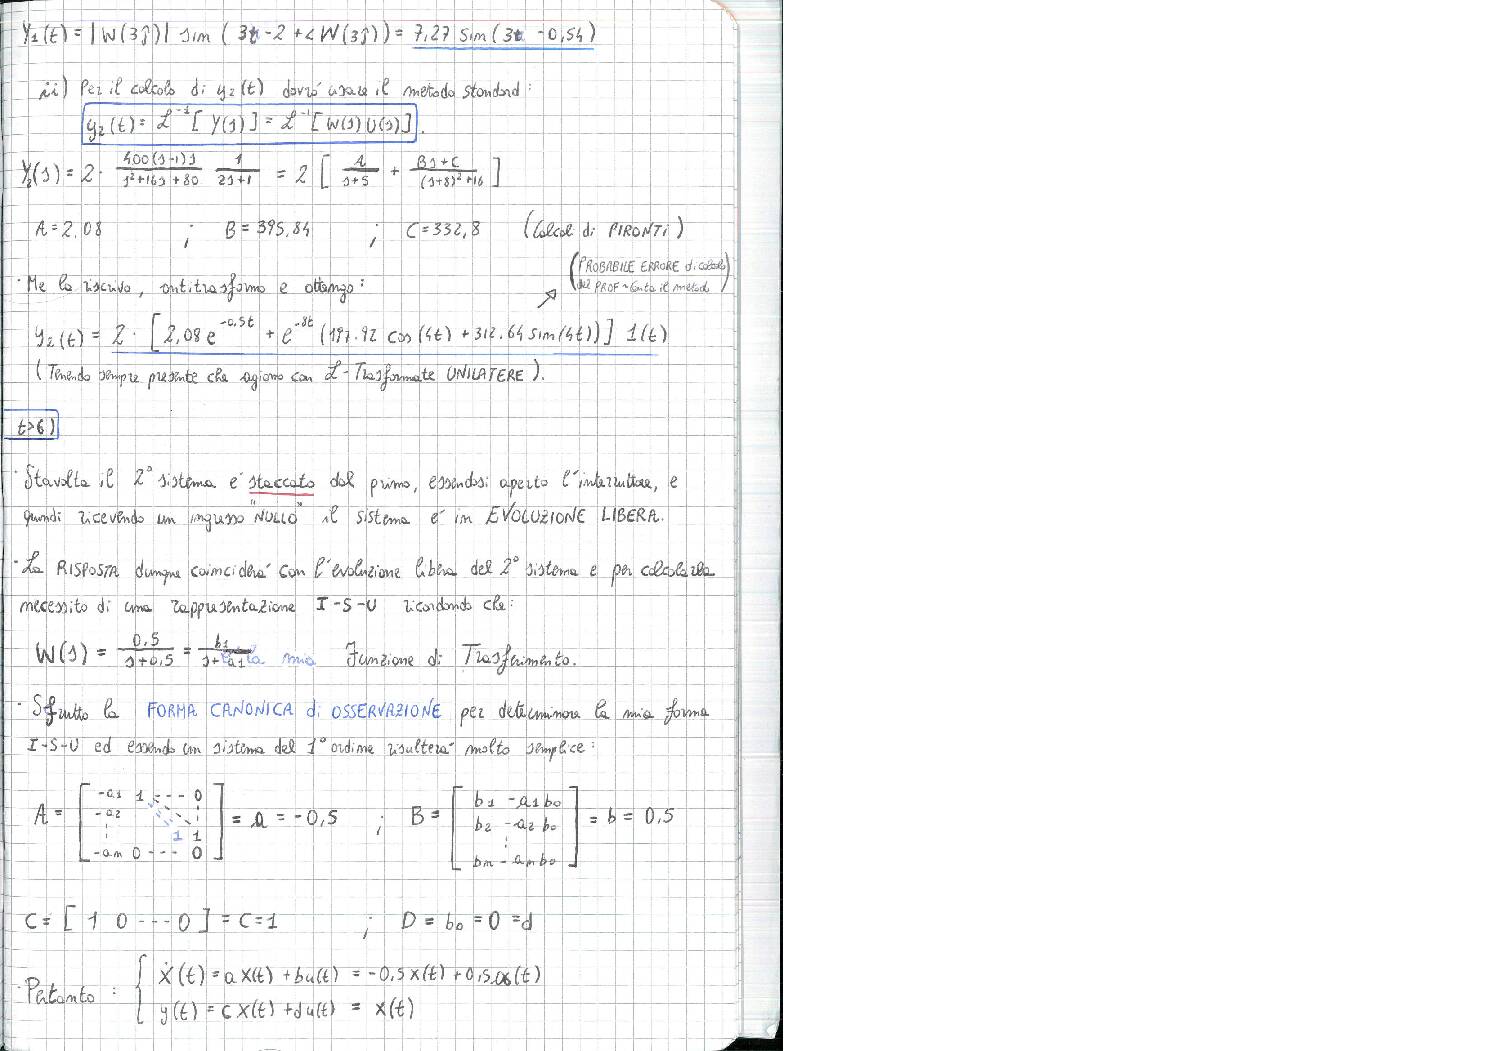 Y₁(t) = |W(3j)| sin ( 3t - 2 + ∠W(3j)) = 7,27 sin(3t - 0,54)
ii) Per il calcolo di y₂(t) dovrò usare il metodo standard:
y₂(t) = ℒ⁻¹[ Y(s) ] = ℒ⁻¹[ W(s) U(s) ].
Y₂(s) = 2 · 400(s-1)s / s²+16s+80 · 1 / 2s+1 = 2 [ A / s+5 + Bs+C / (s+8)²+16 ]
A = 2,08 ; B = 395,84 ; C = 332,8 (Calcol di PIRONTI)
(PROBABILE ERRORE di calcolo
del PROF ~ Conta il metodo)
· Me la riscrivo, antitrasformo e ottengo:
y₂(t) = 2 · [ 2,08 e^-0,5t + e^-8t (197.92 cos(4t) + 312.64 sin(4t)) ] 1(t)
(Tenendo sempre presente che agiamo con ℒ-Trasformate UNILATERE).
t>6)
· Stavolta il 2° sistema è staccato dal primo, essendosi aperto l'interruttore, e
quindi ricevendo un ingresso "NULLO" il sistema è in EVOLUZIONE LIBERA.
· La RISPOSTA dunque coinciderà con l'evoluzione libera del 2° sistema e per calcolarla
necessito di una rappresentazione I-S-U ricordando che:
W(s) = 0,5 / s+0,5 = b₁ / s+a₁ è la mia Funzione di Trasferimento.
· Sfrutto la FORMA CANONICA di OSSERVAZIONE per determinare la mia forma
I-S-U ed essendo un sistema del 1° ordine risulterà molto semplice:
A = [ -a₁ 1 --- 0
-a₂
1 1
-an 0 --- 0 ] = a = -0,5 ; B = [ b₁ -a₁b₀
b₂ -a₂b₀
bn - anb₀ ] = b = 0,5
C = [ 1 0 --- 0 ] = C = 1 ; D = b₀ = 0 = d
· Pertanto : { ẋ(t) = a x(t) + bu(t) = -0,5 x(t) + 0,5 u(t)
y(t) = C x(t) + du(t) = x(t)